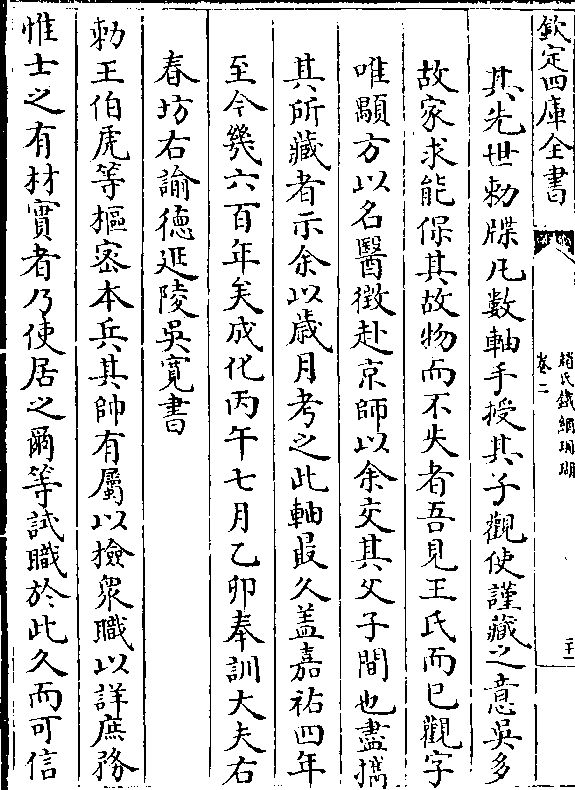 欽定四庫全書
趙氏鐵網珊瑚
卷二
二十一
其先世勅牒凡數軸手授其子觀使謹藏之意吳多
故家求能保其故物而不失者吾見王氏而已觀字
唯顒方以名醫徵赴京師以余交其父子間也盡攜
其所藏者示余以歳月考之此軸最久盖嘉祐四年
至今幾六百年矣成化丙午七月乙卯奉訓大夫右
春坊右諭德延陵吳寛書
勅王伯虎等樞宻本兵其帥有屬以撿衆職以詳庶務
惟士之有材實者乃使居之爾等試職於此久而可信